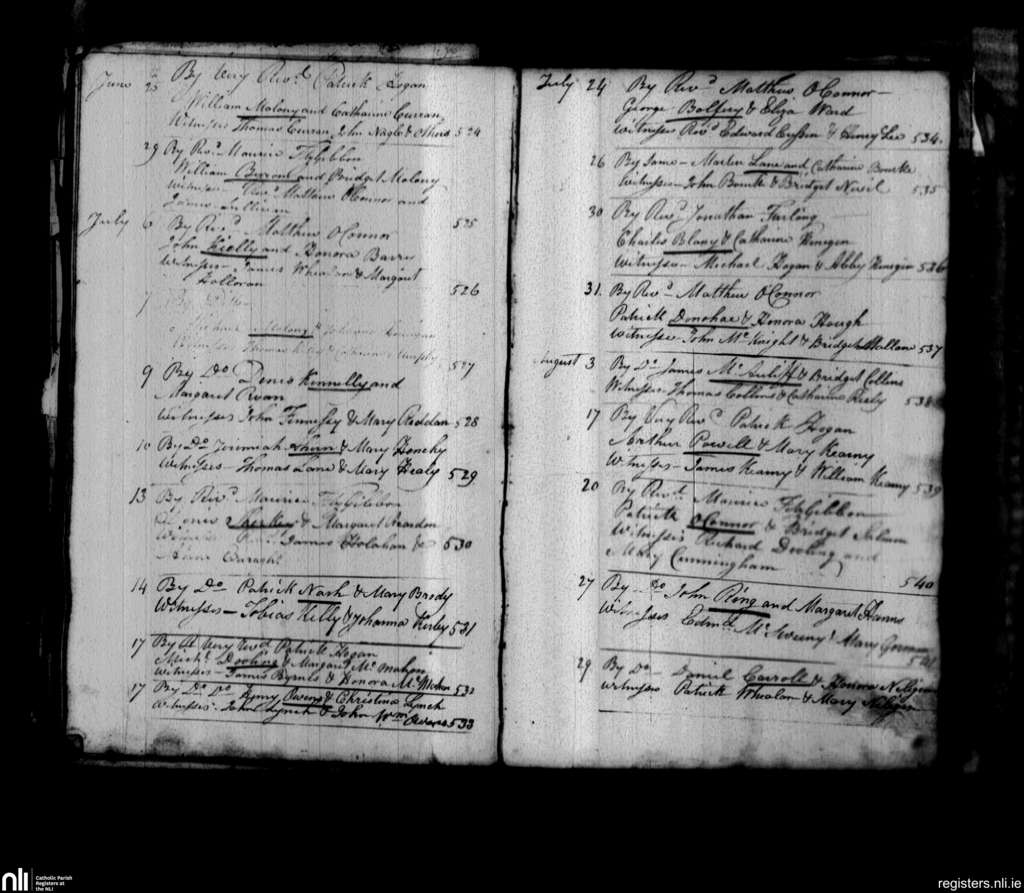 June 23 By Very Revd. Patrick Hogan
William Malony and Catharine Curran
Witnesses Thomas Curran, John Nagle & Others 524
29 By Revd. Maurice FitzGibbon
William and Bridget Malony
Witnesses Revd. Matthew O'Connor and
James Sullivan 525
July 6 By Revd. Matthew O'Connor
John Kielly and Honora Barry
Witnesses James Whelan & Margaret
Holloran 526
7 By
Michael Malony &
Witnesses Thomas 527
9 By Do. Denis Kennelly and
Margaret Ryan
Witnesses John Fennessy & Mary Reddan 528
10 By Do. Jeremiah Ahern & Mary Henchy
Witnesses - Thomas Lane & Mary Healy 529
13 By Revd. Maurice FitzGibbon
& Margaret Reardon
Witnesses Revd. James Holahan &
530
14 By Do. Patrick Nash & Mary Brody
Witnesses - Tobias Kelly & Johanna Kirby 531
17 By Very Revd. Patrick Hogan
Michl. Dooling & Margaret McMahon
Witnesses - James Byrnes & Honora McMahon 532
17 By Do. Do. Henry Owens & Christina Lynch
Witnesses - John Lynch & John Owens 533
July 24 By Revd. Matthew O'Connor -
George & Eliza Ward
Witnesses Revd. Edward & Henry Lee 534
26 By Same - Martin Lane and Catharine Bourke
Witnesses John Bourke & Bridget 535
30 By Revd. Jonathan Furlong
Charles Blany & Catharine Kenigen
Witnesses - Michael Hogan & Abby Kenigen 536
31. By Revd. Matthew O'Connor
Patrick Donohoe & Honora Hough
Witnesses John McKnight & Bridget Mallane 537
August 3 By Do. James McAuliff & Bridget Collins
Witnesses - Thomas Collins & Catharine 538
17 By Very Revd. Patrick Hogan
Arthur Powell & Mary Keamy
Witnesses - James Keamy & William Keamy 539
20 By Revd. Maurice FitzGibbon
Patrick O'Connor & Bridget
Witnesses Richard Dooling and
Mary Cunningham 540
27 By Do. John Ring and Margaret Hanns
Witnesses Edmd. McSweeny & Mary Gorman
541
29 By Do. Daniel Carroll & Honora
Witnesses Patrick Whelan & Mary
nli Catholic Parish
Registers at
the NLI
registers.nli.ie